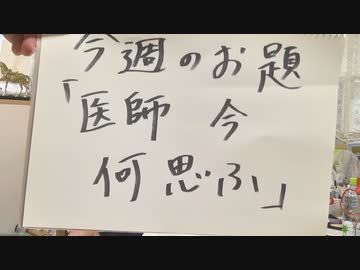 今週のお題
「医師 今
何思ふ」